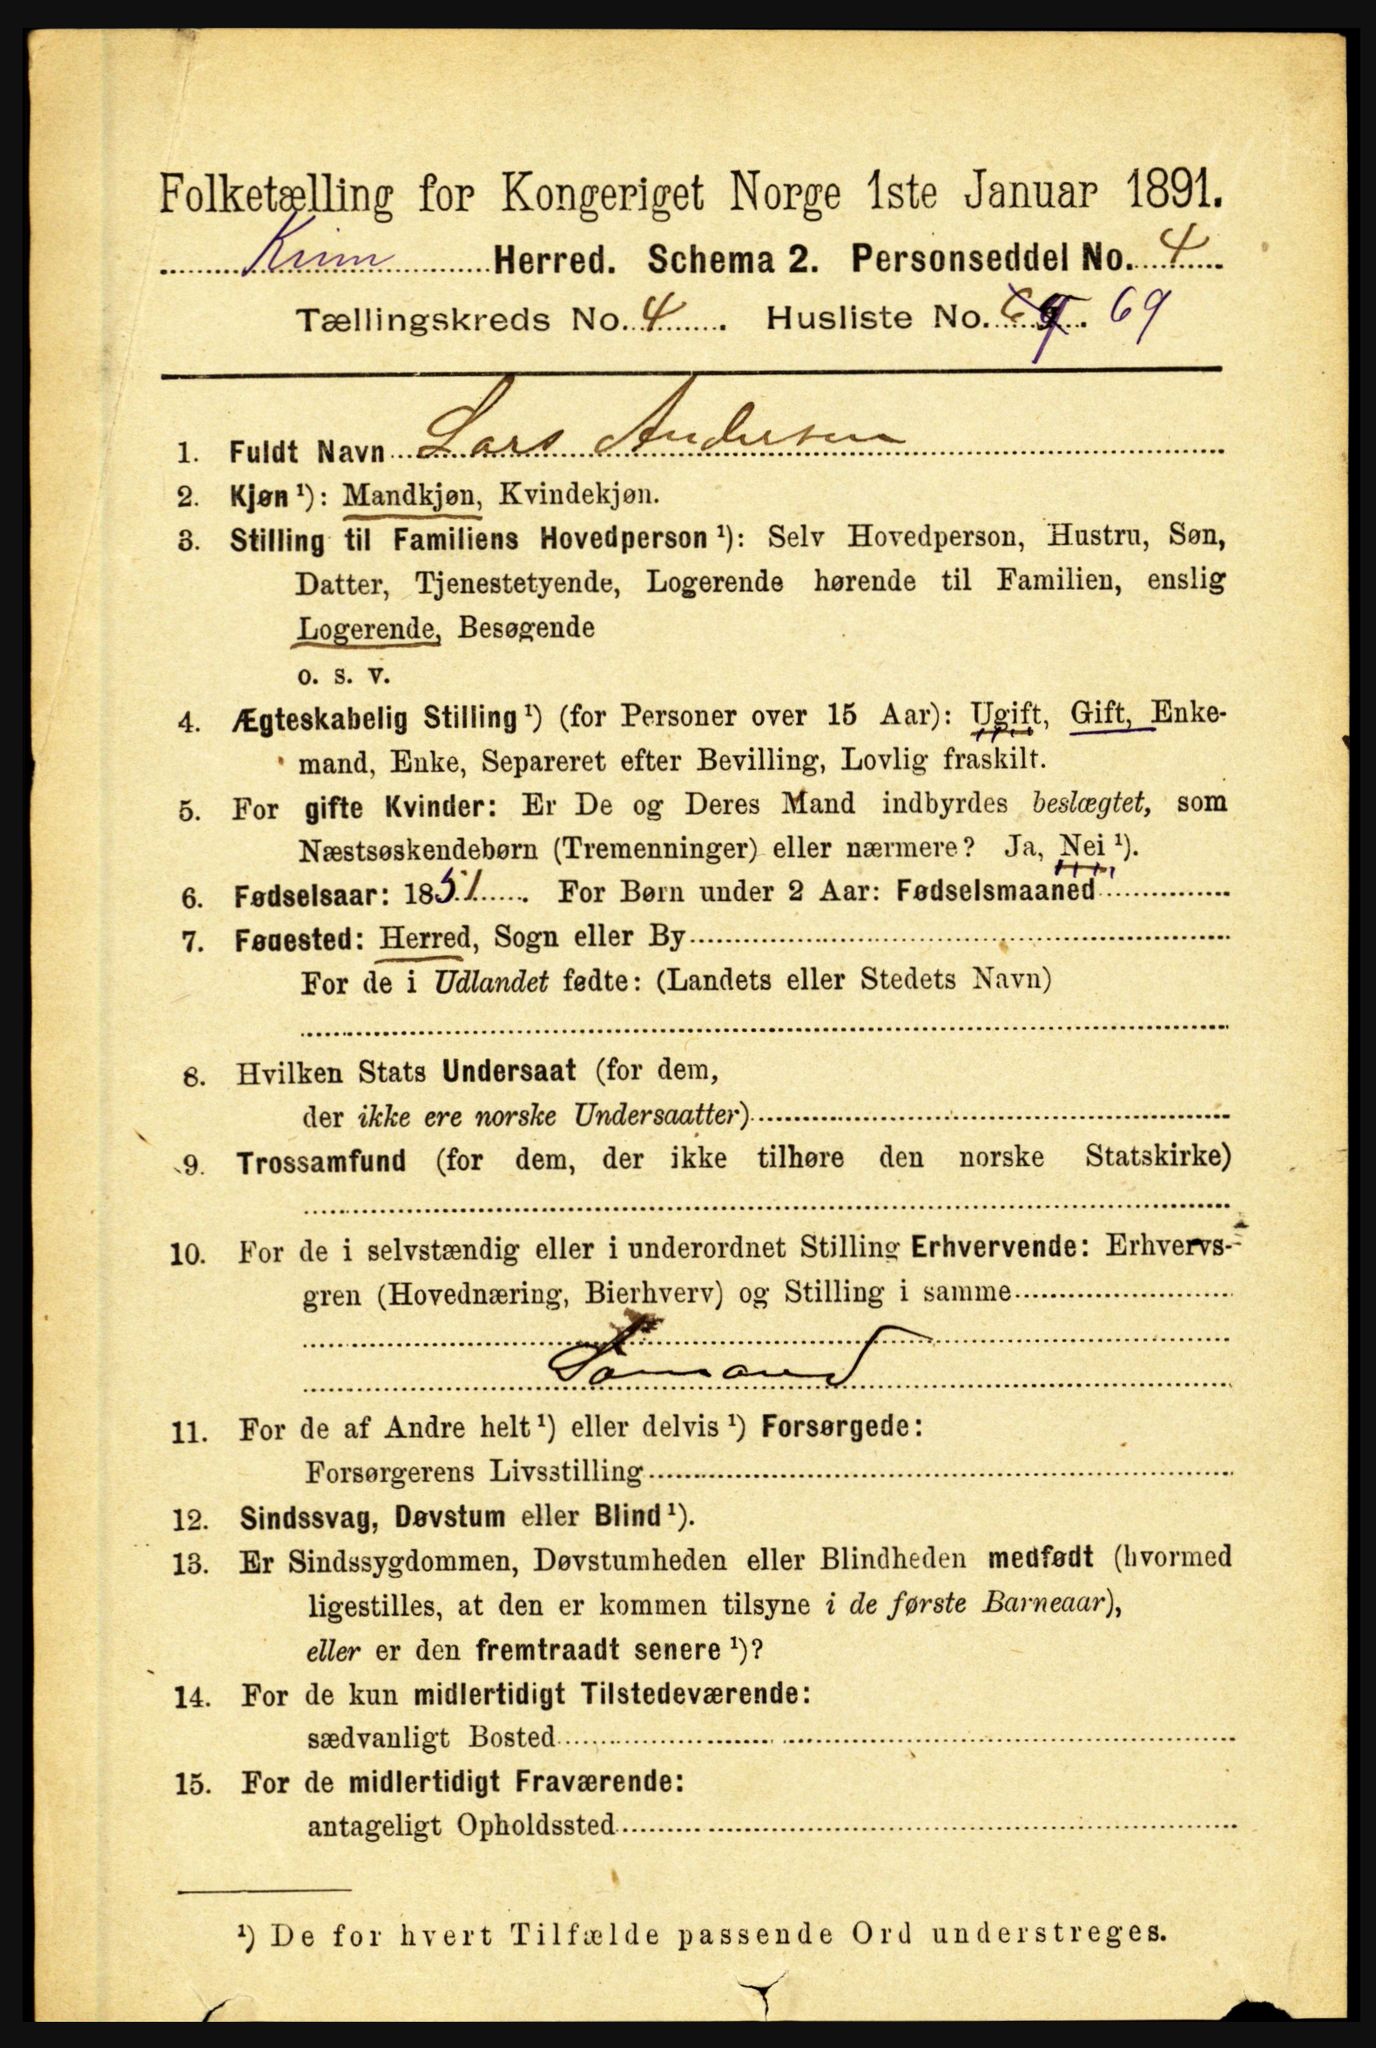 Folketælling for Kongeriget Norge 1ste Januar 1891.
Kinn Herred. Schema 2. Personseddel No. 4
Tællingskreds No. 4. Husliste No. 69
1. Fuldt Navn Lars Andersen
2. Kjøn ¹): Mandkjøn, Kvindekjøn.
3. Stilling til Familiens Hovedperson ¹): Selv Hovedperson, Hustru, Søn,
Datter, Tjenestetyende, Logerende hørende til Familien, enslig
Logerende, Besøgende
o. s. v.
4. Ægteskabelig Stilling ¹) (for Personer over 15 Aar): Ugift, Gift, Enke-
mand, Enke, Separeret efter Bevilling, Lovlig fraskilt.
5. For gifte Kvinder: Er De og Deres Mand indbyrdes beslægtet, som
Næstsøskendebørn (Tremenninger) eller nærmere? Ja, Nei ¹).
6. Fødselsaar: 1851. For Børn under 2 Aar: Fødselsmaaned
7. Fødested: Herred, Sogn eller By
For de i Udlandet fødte: (Landets eller Stedets Navn)
8. Hvilken Stats Undersaat (for dem,
der ikke ere norske Undersaatter)
9. Trossamfund (for dem, der ikke tilhøre den norske Statskirke)
10. For de i selvstændig eller i underordnet Stilling Erhvervende: Erhvervs-
gren (Hovednæring, Bierhverv) og Stilling i samme
Sømand
11. For de af Andre helt ¹) eller delvis ¹) Forsørgede:
Forsørgerens Livsstilling
12. Sindssvag, Døvstum eller Blind ¹).
13. Er Sindssygdommen, Døvstumheden eller Blindheden medfødt (hvormed
ligestilles, at den er kommen tilsyne i de første Barneaar),
eller er den fremtraadt senere ¹)?
14. For de kun midlertidigt Tilstedeværende:
sædvanligt Bosted
15. For de midlertidigt Fraværende:
antageligt Opholdssted
¹) De for hvert Tilfælde passende Ord understreges.